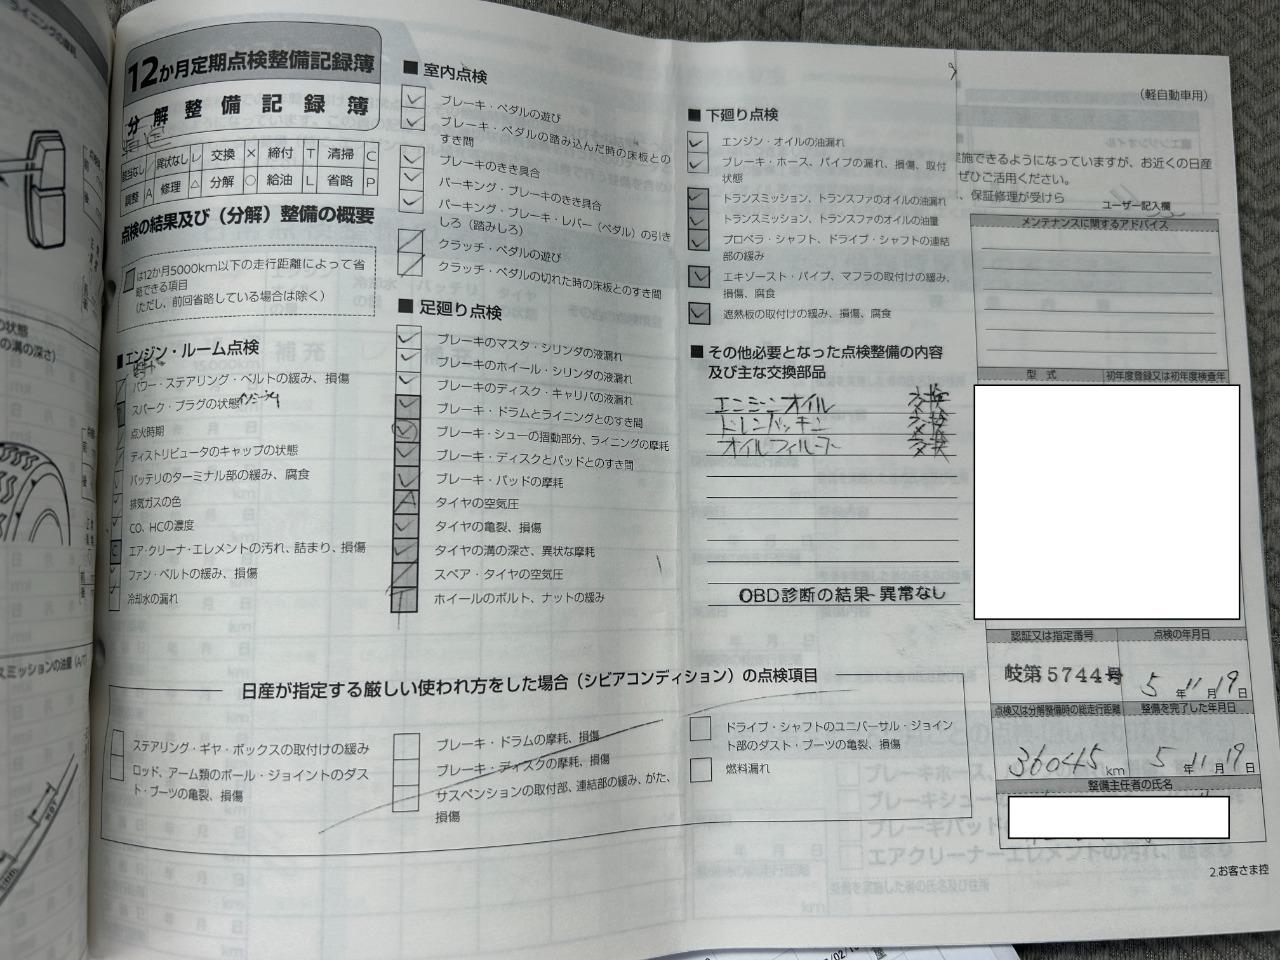 12か月定期点検整備記録簿
分解整備記録簿
異状なし レ 交換 × 締付 T 清掃 C
調整 A 修理 △ 分解 ○ 給油 L 省略 P
点検の結果及び（分解）整備の概要
は12か月5000km以下の走行距離によって省
略できる項目
（ただし、前回省略している場合は除く）
■ エンジン・ルーム点検
パワー・ステアリング・ベルトの緩み、損傷
スパーク・プラグの状態
点火時期
ディストリビュータのキャップの状態
バッテリのターミナル部の緩み、腐食
排気ガスの色
CO、HCの濃度
C エア・クリーナ・エレメントの汚れ、詰まり、損傷
ファン・ベルトの緩み、損傷
冷却水の漏れ
■ 室内点検
ブレーキ・ペダルの遊び
ブレーキ・ペダルの踏み込んだ時の床板との
すき間
ブレーキのきき具合
パーキング・ブレーキのきき具合
パーキング・ブレーキ・レバー（ペダル）の引き
しろ（踏みしろ）
クラッチ・ペダルの遊び
クラッチ・ペダルの切れた時の床板とのすき間
■ 足廻り点検
ブレーキのマスタ・シリンダの液漏れ
ブレーキのホイール・シリンダの液漏れ
ブレーキのディスク・キャリパの液漏れ
ブレーキ・ドラムとライニングとのすき間
ブレーキ・シューの摺動部分、ライニングの摩耗
ブレーキ・ディスクとパッドとのすき間
ブレーキ・パッドの摩耗
A タイヤの空気圧
タイヤの亀裂、損傷
タイヤの溝の深さ、異状な摩耗
スペア・タイヤの空気圧
T ホイールのボルト、ナットの緩み
■ 下廻り点検
エンジン・オイルの油漏れ
ブレーキ・ホース、パイプの漏れ、損傷、取付
状態
トランスミッション、トランスファのオイルの油漏れ
トランスミッション、トランスファのオイルの油量
プロペラ・シャフト、ドライブ・シャフトの連結
部の緩み
エキゾースト・パイプ、マフラの取付けの緩み、
損傷、腐食
遮熱板の取付けの緩み、損傷、腐食
■ その他必要となった点検整備の内容
及び主な交換部品
エンジンオイル 交換
ドレンパッキン 交換
オイルフィルター 交換
OBD診断の結果 異常なし
（軽自動車用）
実施できるようになっていますが、お近くの日産
ぜひご活用ください。
、保証修理が受けら
ユーザー記入欄
メンテナンスに関するアドバイス
型式 初年度登録又は初年度検査年
認証又は指定番号 点検の年月日
岐第5744号 5年11月19日
点検又は分解整備時の総走行距離 整備を完了した年月日
36045km 5年11月19日
整備主任者の氏名
日産が指定する厳しい使われ方をした場合（シビアコンディション）の点検項目
ステアリング・ギヤ・ボックスの取付けの緩み
ロッド、アーム類のボール・ジョイントのダス
ト・ブーツの亀裂、損傷
ブレーキ・ドラムの摩耗、損傷
ブレーキ・ディスクの摩耗、損傷
サスペンションの取付部、連結部の緩み、がた、
損傷
ドライブ・シャフトのユニバーサル・ジョイン
ト部のダスト・ブーツの亀裂、損傷
燃料漏れ
2.お客さま控